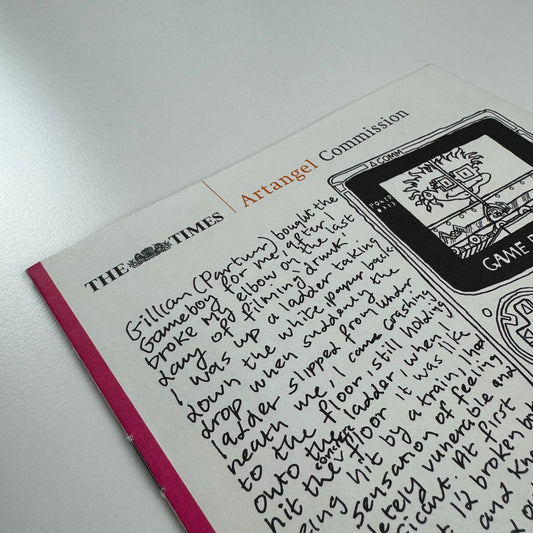 THE TIMES
Artangel Commission
Gillian (Partium) bought the
Gameboy for me after I
broke my elbow on the last
day of filming drunk.
I was up a ladder taking
down the white paper back
drop when suddenly the
ladder slipped from under
neath me, I came crashing
to the floor, still holding
onto the ladder, when I
hit the concrete floor it was like
being hit by a train, I had
sensation of feeling
completely vunerable and
At first
I'd broken
and
GAME